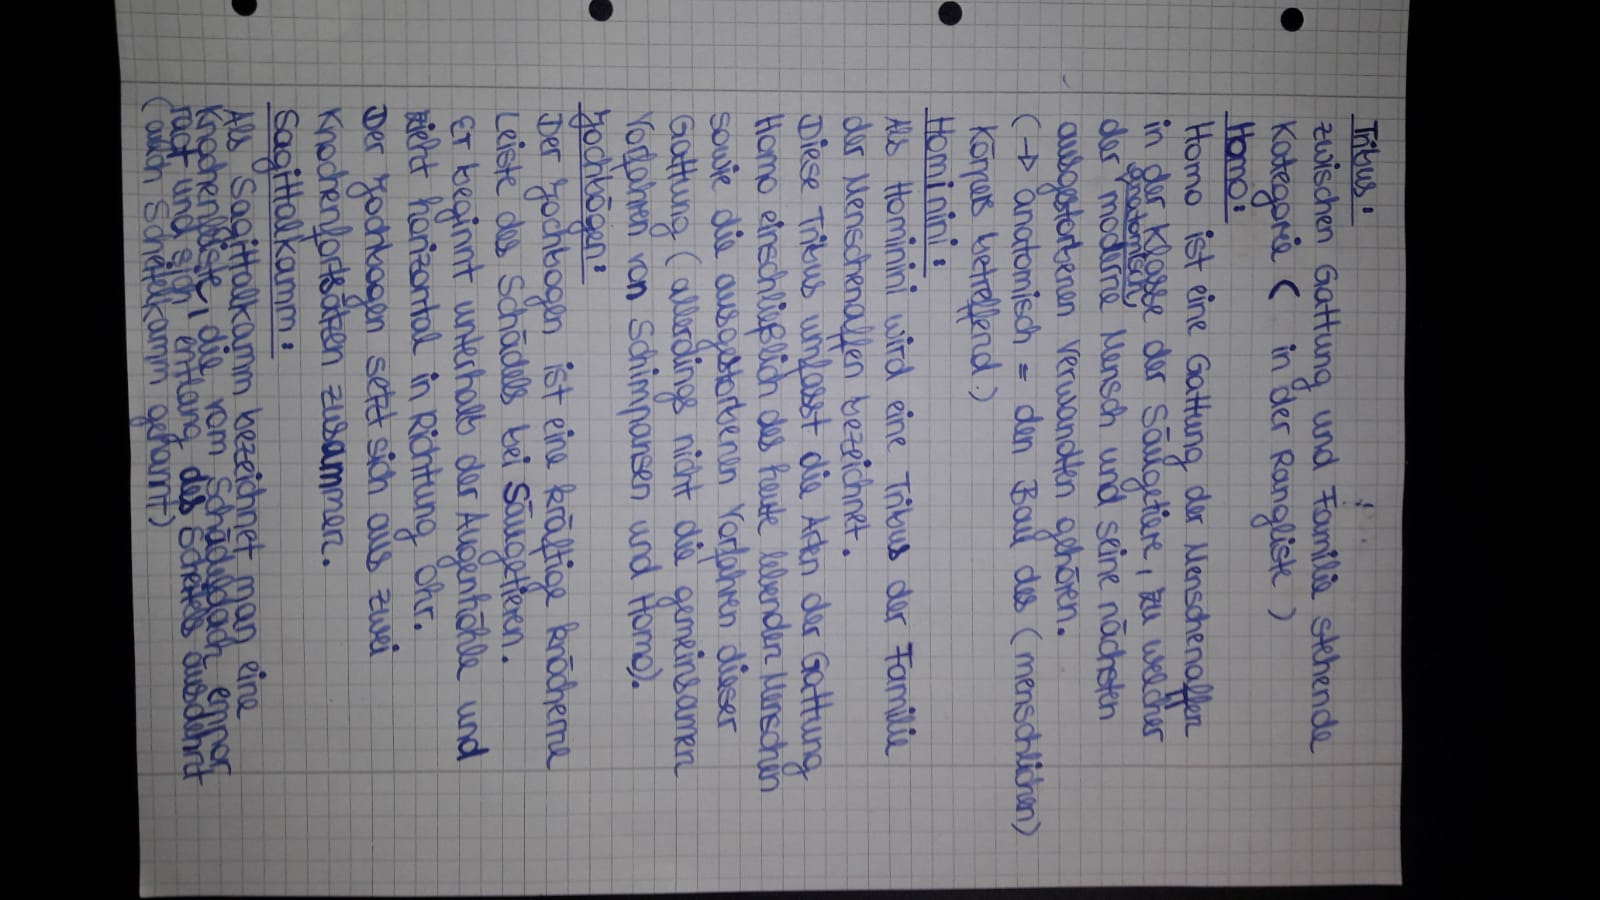 Tribus:
zwischen Gattung und Familie stehende
Kategorie ( in der Rangliste )
Homo:
Homo ist eine Gattung der Menschenaffen
in der Klasse der Säugetiere, zu welcher
anatomisch
der moderne Mensch und seine nächsten
ausgestorbenen Verwandten gehören.
(→ anatomisch = den Bau des (menschlichen)
Körpers betreffend.)
Hominini:
Als Hominini wird eine Tribus der Familie
der Menschenaffen bezeichnet.
Diese Tribus umfasst die Arten der Gattung
Homo einschließlich des heute lebenden Menschen
sowie die ausgestorbenen Vorfahren dieser
Gattung (allerdings nicht die gemeinsamen
Vorfahren von Schimpansen und Homo).
Jochbögen:
Der Jochbogen ist eine kräftige knöcherne
Leiste des Schädels bei Säugetieren.
Er beginnt unterhalb der Augenhöhle und
zieht horizontal in Richtung Ohr.
Der Jochbogen setzt sich aus zwei
Knochenfortsätzen zusammen.
Sagittalkamm:
Als Sagittalkamm bezeichnet man eine
Knochenleiste, die vom Schädeldach empor
ragt und sich entlang des Scheitels ausdehnt
(auch Scheitelkamm genannt)